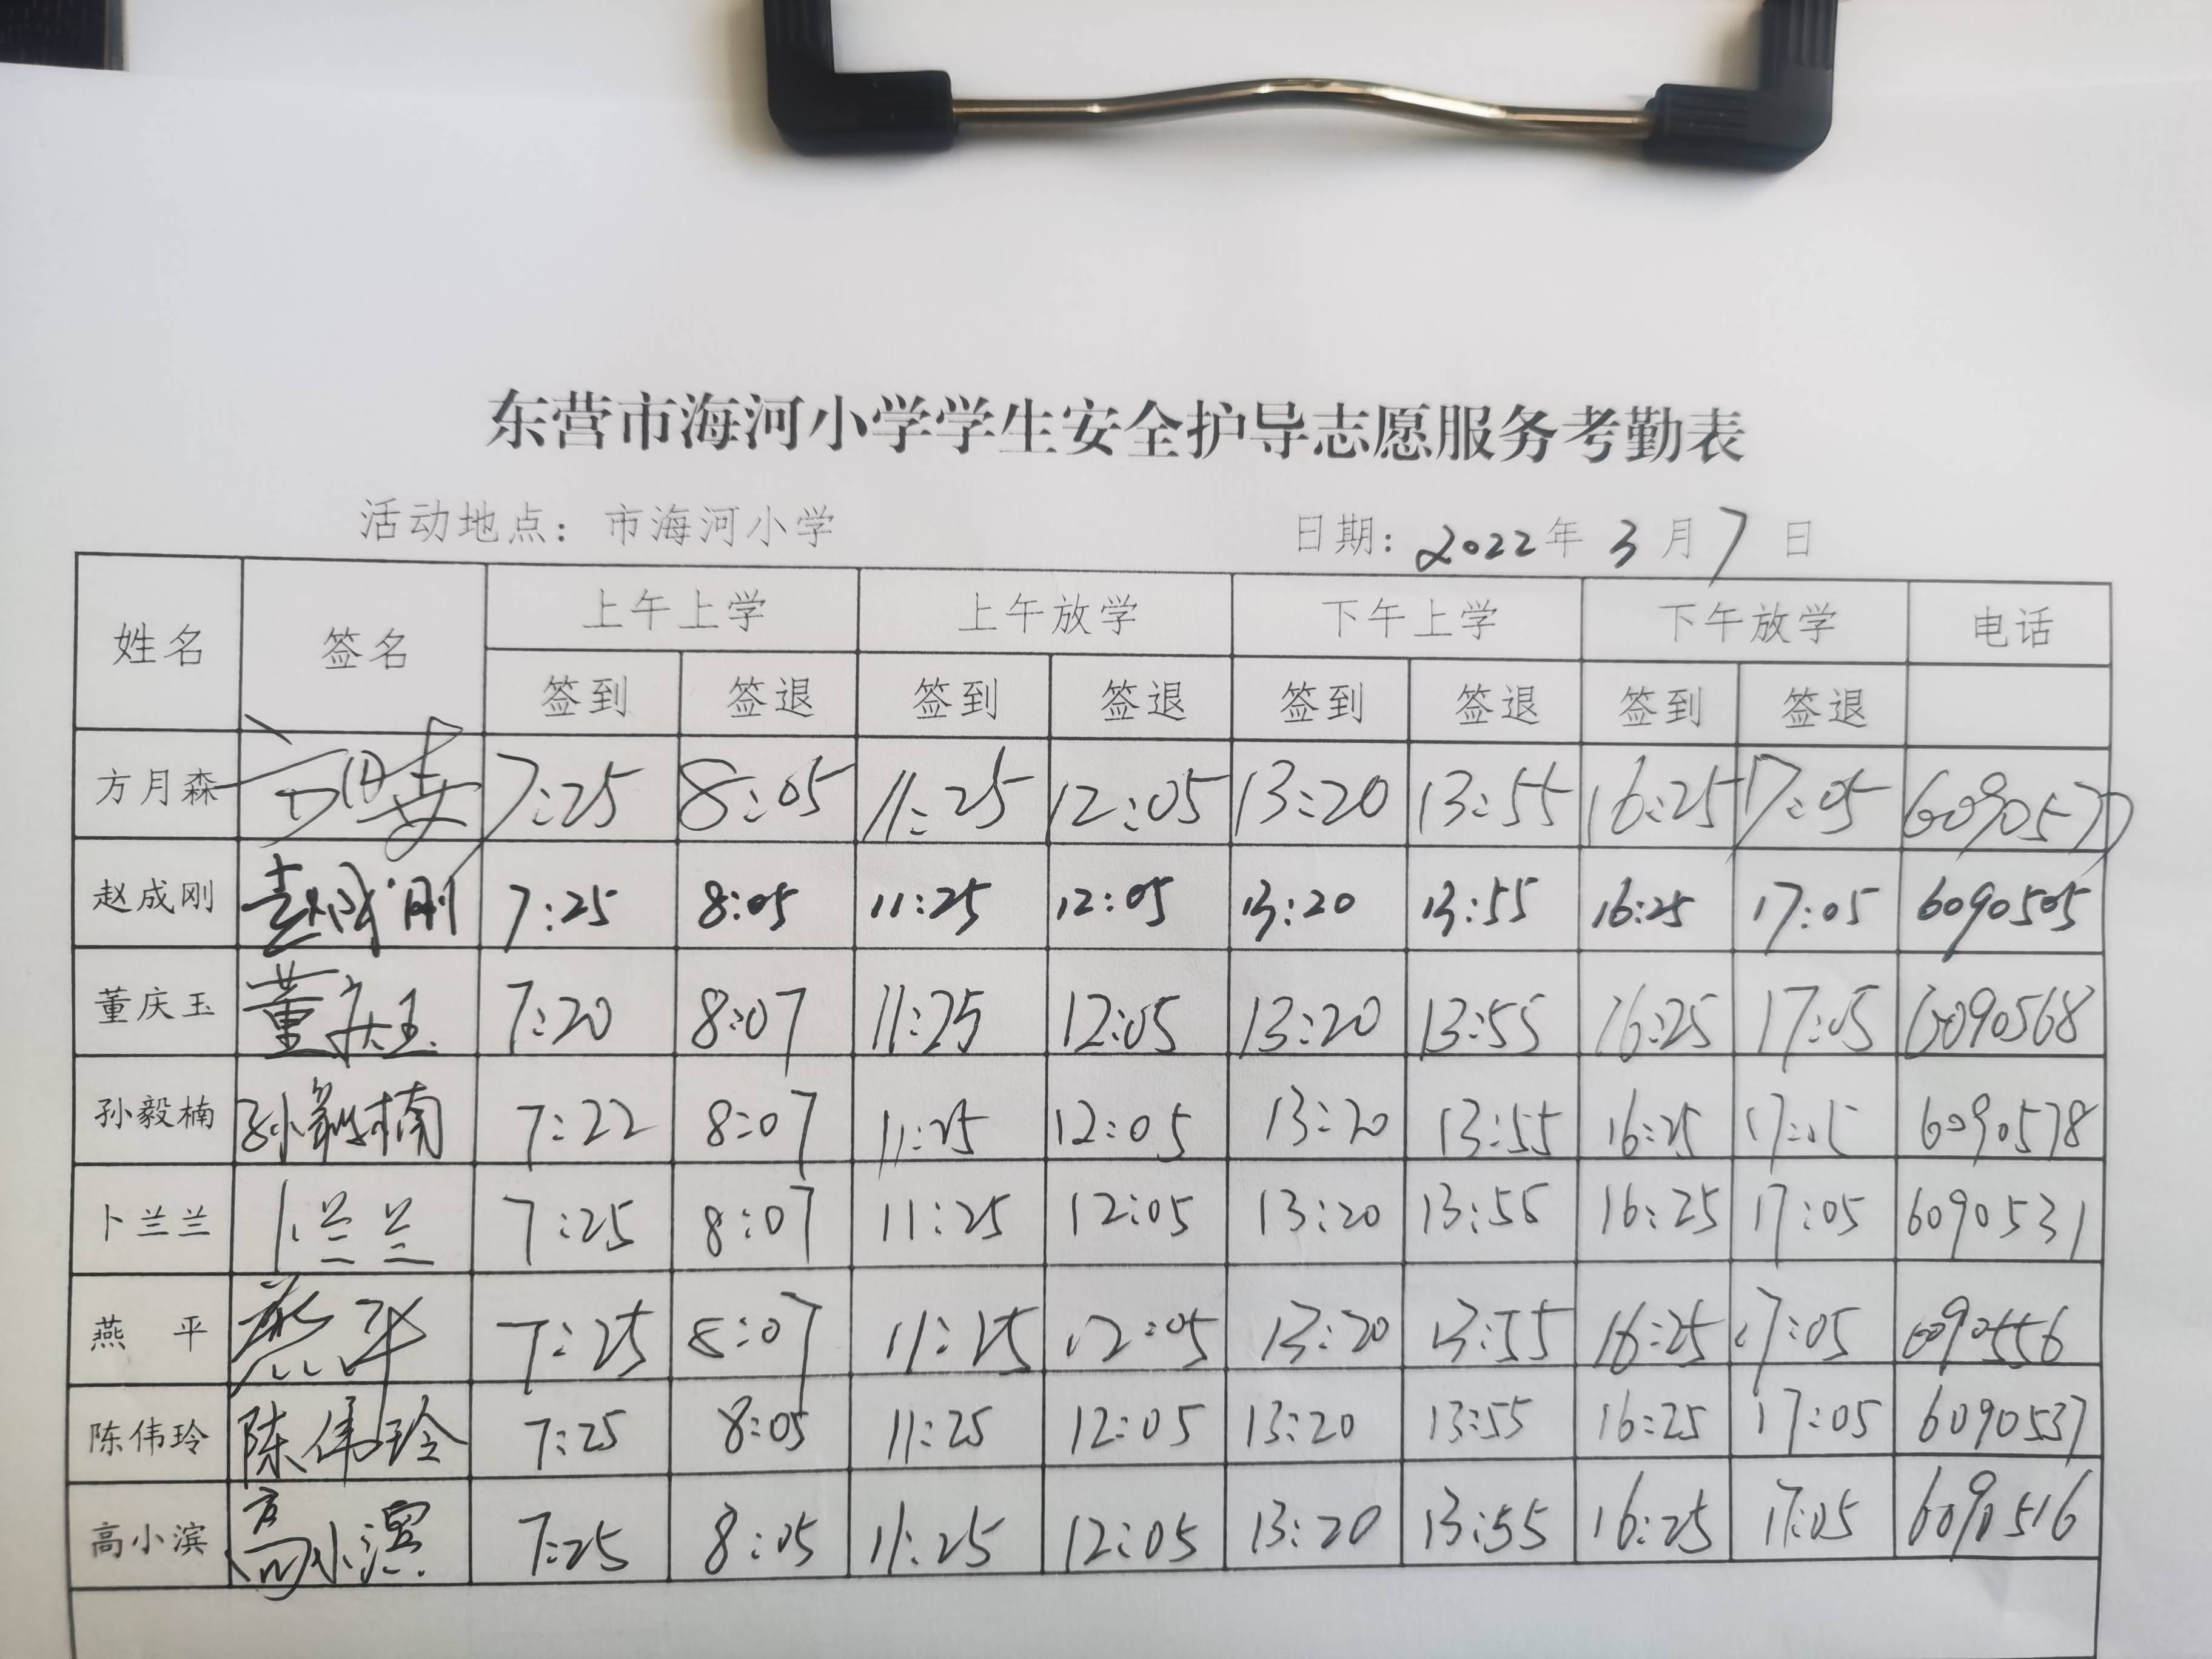 东营市海河小学学生安全护导志愿服务考勤表
活动地点：市海河小学 日期：2022年3月7日
姓名 签名 上午上学 上午放学 下午上学 下午放学 电话
签到 签退 签到 签退 签到 签退 签到 签退
方月森 7:25 8:05 11:25 12:05 13:20 13:55 16:25 17:05 6090577
赵成刚 赵成刚 7:25 8:05 11:25 12:05 13:20 13:55 16:25 17:05 6090505
董庆玉 董庆玉 7:20 8:07 11:25 12:05 13:20 13:55 16:25 17:05 6090568
孙毅楠 孙毅楠 7:22 8:07 11:25 12:05 13:20 13:55 16:25 17:05 6090578
卜兰兰 卜兰兰 7:25 8:07 11:25 12:05 13:20 13:55 16:25 17:05 6090531
燕 平 燕平 7:25 8:07 11:25 12:05 13:20 13:55 16:25 17:05 6090556
陈伟玲 陈伟玲 7:25 8:05 11:25 12:05 13:20 13:55 16:25 17:05 6090537
高小滨 高小滨 7:25 8:05 11:25 12:05 13:20 13:55 16:25 17:05 6090516